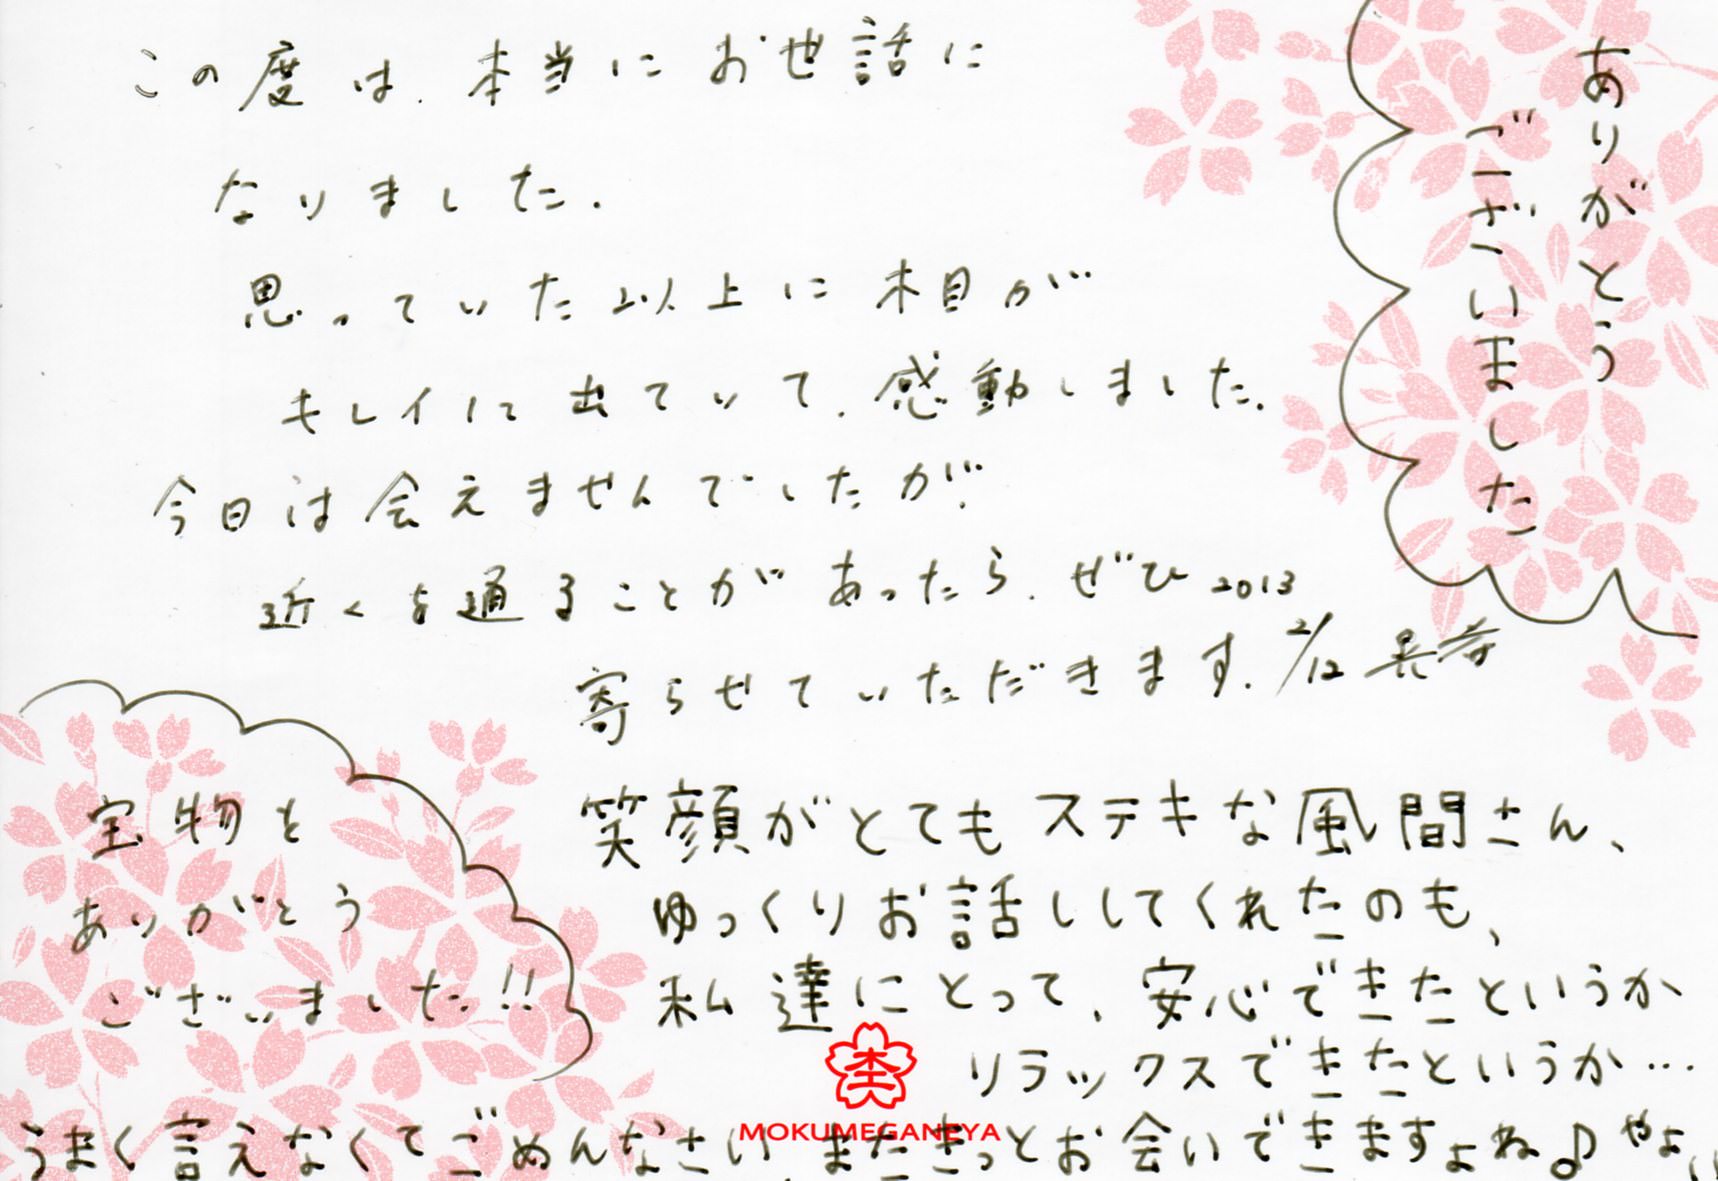 この度は、本当にお世話に
なりました.
思っていた以上に木目が
キレイに出ていて、感動しました.
今日は会えませんでしたが、
近くを通ることがあったら、ぜひ
寄らせていただきます.
2013
2/12
ありがとう
ございました
宝物を
ありがとう
ございました!!
笑顔がとてもステキな風間さん、
ゆっくりお話ししてくれたのも、
私達にとって、安心できたというか
リラックスできたというか…
うまく言えなくてごめんなさい、またきっとお会いできますよね♪
MOKUMEGANEYA